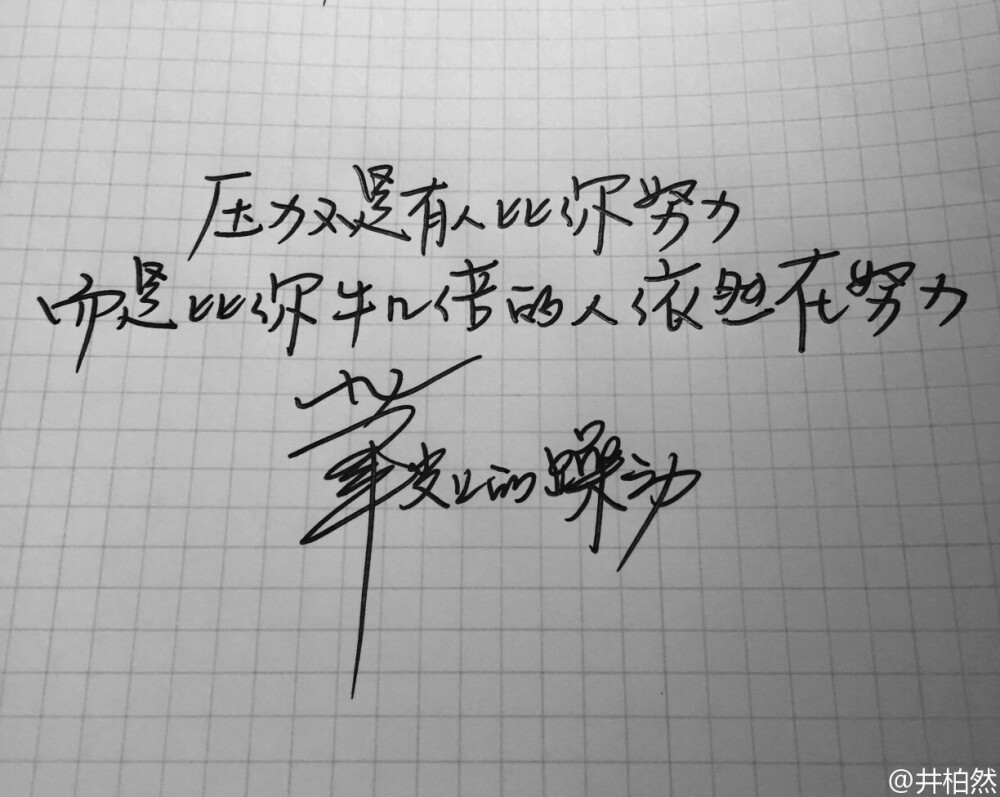 压力不是有人比你努力
而是比你牛几倍的人依然在努力
笔尖上的躁动
@井柏然